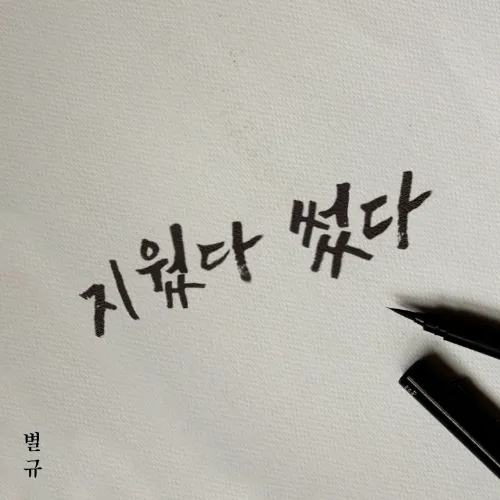 지웠다 썼다
별규